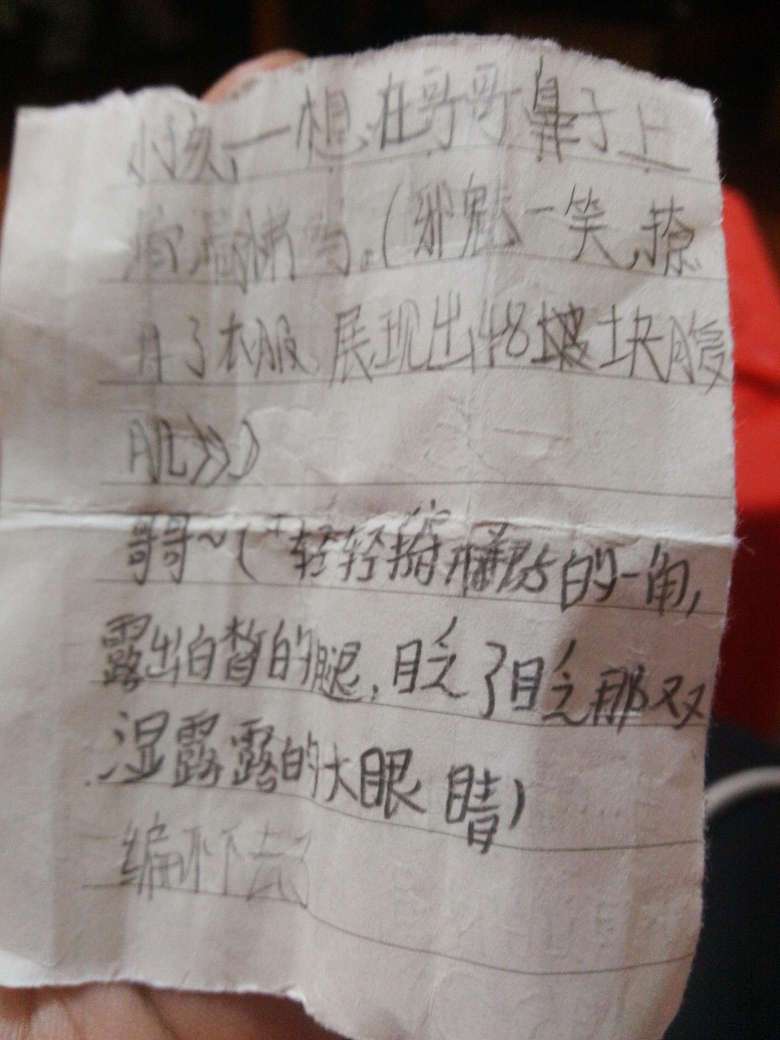 小孩,一想在哥哥鼻子上
(邪魅一笑,撩
开了衣服,展现出48块腹
肌》)
哥哥~(轻轻掰的一角,
露出白皙的腿,眨了眨那双
湿露露的大眼睛)
编不下去了